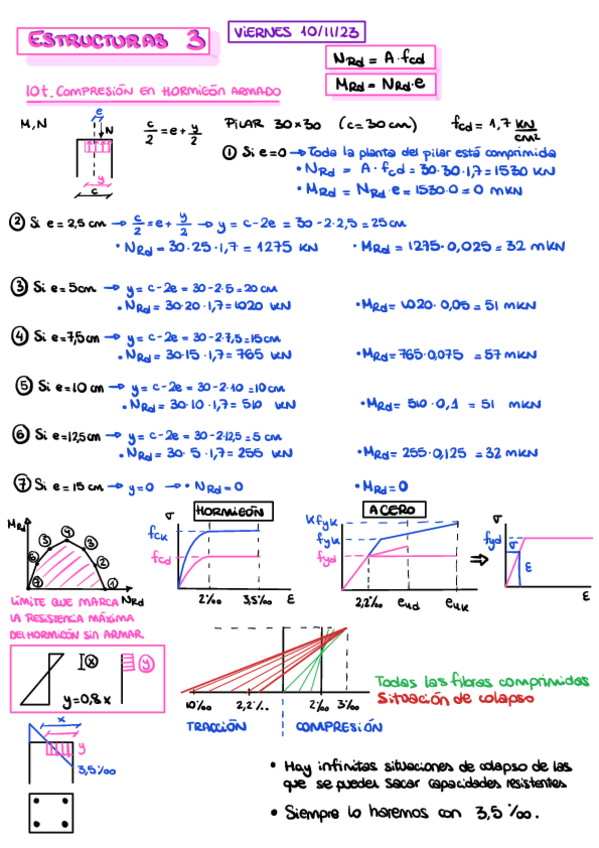 ESTRUCTURAS 3
VIERNES 10/11/23
NRd = A·fcd
MRd = NRd·e
10t. COMPRESIÓN EN HORMIGÓN ARMADO
M,N
e
N
y
c
c/2 = e + y/2
PILAR 30x30 (c=30cm) fcd = 1,7 KN/cm2
① Si e=0 → Toda la planta del pilar está comprimida
• NRd = A·fcd = 30·30·1,7 = 1530 KN
• MRd = NRd·e = 1530·0 = 0 mKN
② Si e = 2,5 cm → c/2 = e + y/2 → y = c-2e = 30-2·2,5 = 25cm
• NRd = 30·25·1,7 = 1275 KN • MRd = 1275·0,025 = 32 mKN
③ Si e=5cm → y = c-2e = 30-2·5 = 20cm
• NRd = 30·20·1,7 = 1020 KN • MRd = 1020·0,05 = 51 mKN
④ Si e=7,5cm → y = c-2e = 30-2·7,5 = 15cm
• NRd = 30·15·1,7 = 765 KN • MRd = 765·0,075 = 57 mKN
⑤ Si e=10 cm → y = c-2e = 30-2·10 = 10cm
• NRd = 30·10·1,7 = 510 KN • MRd = 510·0,1 = 51 mKN
⑥ Si e=12,5cm → y = c-2e = 30-2·12,5 = 5 cm
• NRd = 30·5·1,7 = 255 KN • MRd = 255·0,125 = 32 mKN
⑦ Si e = 15 cm → y=0 → • NRd = 0 • MRd = 0
MRd
⑦ ⑥ ⑤ ④ ③ ② ①
NRd
LÍMITE QUE MARCA
LA RESISTENCIA MÁXIMA
DEL HORMIGÓN SIN ARMAR
HORMIGÓN
σ
fck
fcd
2‰ 3,5‰ ε
ACERO
σ
Kfyk
fyk
fyd
2,2‰ εud εuk
⇒
σ
fyd
σ
ε
ε
x y
y=0,8x
x
y
3,5‰
10‰ 2,2‰ 2‰ 3‰
TRACCIÓN COMPRESIÓN
Todas las fibras comprimidas
Situación de colapso
• Hay infinitas situaciones de colapso de las
que se pueden sacar capacidades resistentes
• Siempre lo haremos con 3,5‰.